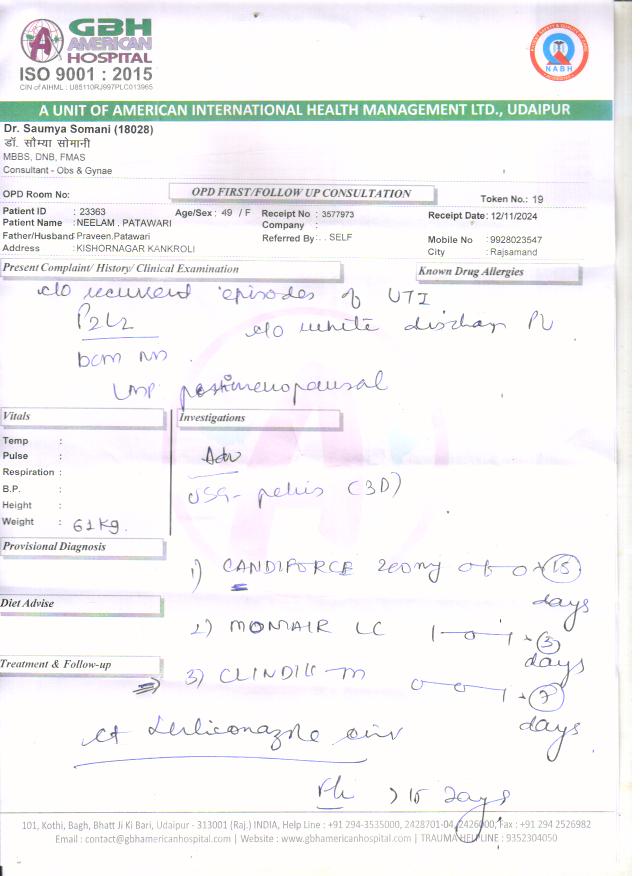 GBH
AMERICAN
HOSPITAL
ISO 9001 : 2015
CIN of AIHML : U85110RJ997PLC013965
NABH
A UNIT OF AMERICAN INTERNATIONAL HEALTH MANAGEMENT LTD., UDAIPUR
Dr. Saumya Somani (18028)
डॉ. सौम्या सोमानी
MBBS, DNB, FMAS
Consultant - Obs & Gynae
OPD Room No:
OPD FIRST/FOLLOW UP CONSULTATION
Token No.: 19
Patient ID : 23363 Age/Sex : 49 / F Receipt No : 3577973 Receipt Date: 12/11/2024
Patient Name : NEELAM . PATAWARI Company :
Father/Husband Praveen.Patawari Referred By : . SELF Mobile No : 9928023547
Address : KISHORNAGAR KANKROLI City : Rajsamand
Present Complaint/ History/ Clinical Examination Known Drug Allergies
c/o recurrent episodes of UTI
P2L2 c/o white discharge PV
LMP postmenopausal
Vitals Investigations
Temp :
Pulse : Adv
Respiration :
B.P. : USG- pelvis (3D)
Height :
Weight : 61kg.
Provisional Diagnosis
1) CANDIFORCE 200mg 15 days
Diet Advise
2) MONTAIR LC 3 days
Treatment & Follow-up
3) CLINDI M 7 days
Luliconazole
15 days
101, Kothi, Bagh, Bhatt Ji Ki Bari, Udaipur - 313001 (Raj.) INDIA, Help Line : +91 294-3535000, 2428701-04, 2426000, Fax : +91 294 2526982
Email : contact@gbhamericanhospital.com | Website : www.gbhamericanhospital.com | TRAUMA HELPLINE : 9352304050